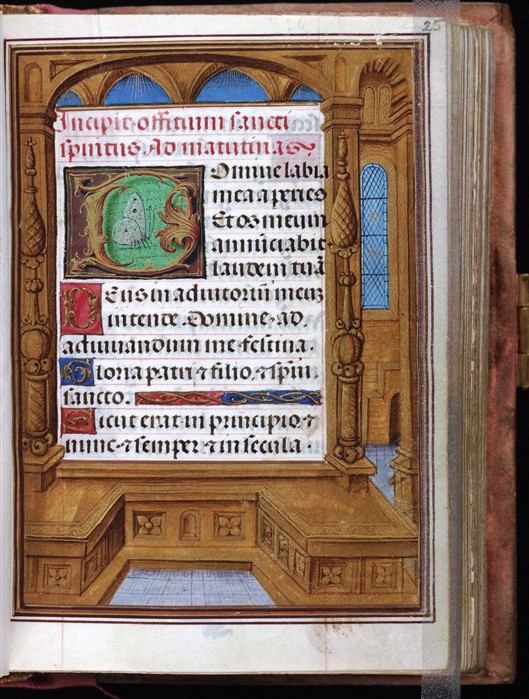 25
Incipit officium sancti
spiritus. Ad matutinas
Domine labia
mea aperies
Et os meum
annuciabit
laudem tuā
Deus in adiutoriū meuz
intende. Domine ad
adiuuandum me festina.
Gloria patri ⁊ filio, ⁊ spūi
sancto.
Sicut erat in principio, ⁊
nunc, ⁊ semper, ⁊ in secula.